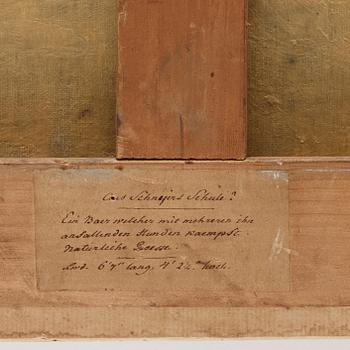 Aus Schneyers Schule?
Ein Baer welcher mit mehreren ihn
anfallenden Hunden kaempft.
Natürliche Groesse.
6' 7" lang. 4' 2½" hoch.